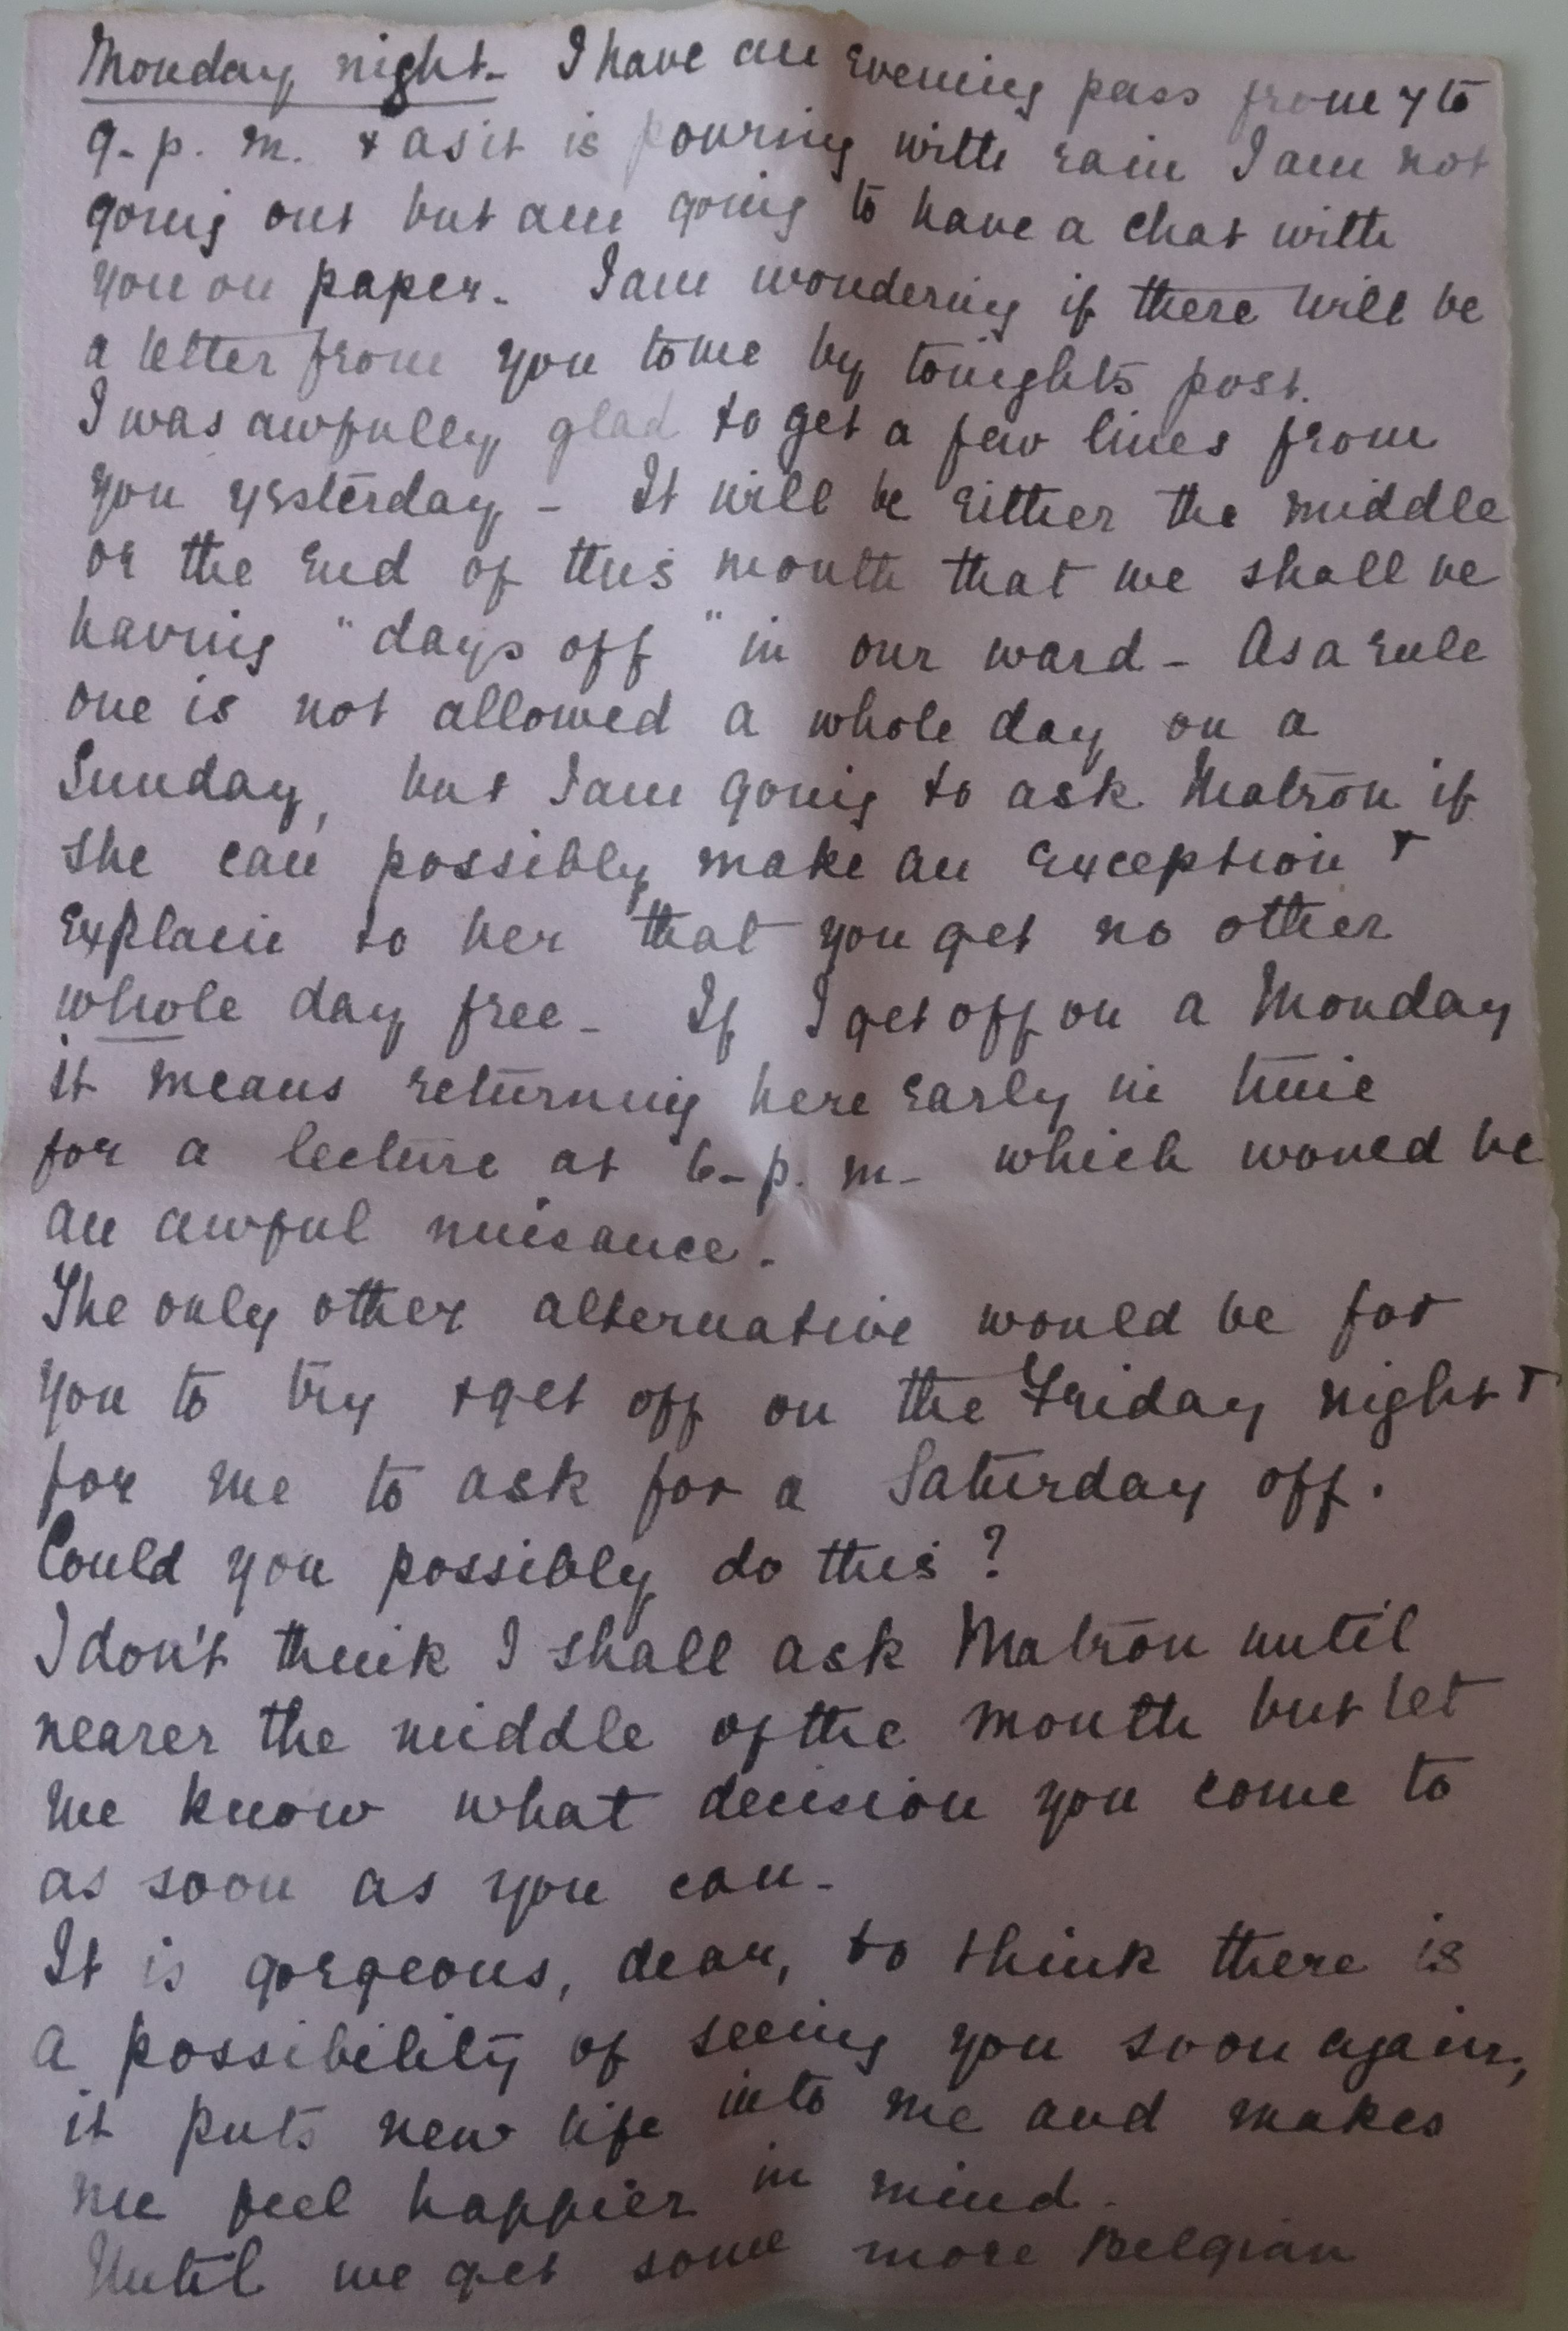 Monday night. I have an evening pass from 7 to
9. p. m. & as it is pouring with rain I am not
going out but am going to have a chat with
you on paper. I am wondering if there will be
a letter from you to me by tonights post.
I was awfully glad to get a few lines from
you yesterday - It will be either the middle
or the end of this month that we shall be
having "days off" in our ward - As a rule
one is not allowed a whole day on a
Sunday, but I am going to ask Matron if
she can possibly make an exception &
explain to her that you get no other
whole day free - If I get off on a Monday
it means returning here early in time
for a lecture at 6-p. m- which would be
an awful nuisance.
The only other alternative would be for
you to try & get off on the Friday night &
for me to ask for a Saturday off.
Could you possibly do this?
I don't think I shall ask Matron until
nearer the middle of the month but let
me know what decision you come to
as soon as you can.
It is gorgeous, dear, to think there is
a possibility of seeing you soon again,
it puts new life into me and makes
me feel happier in mind.
Until we get some more Belgian